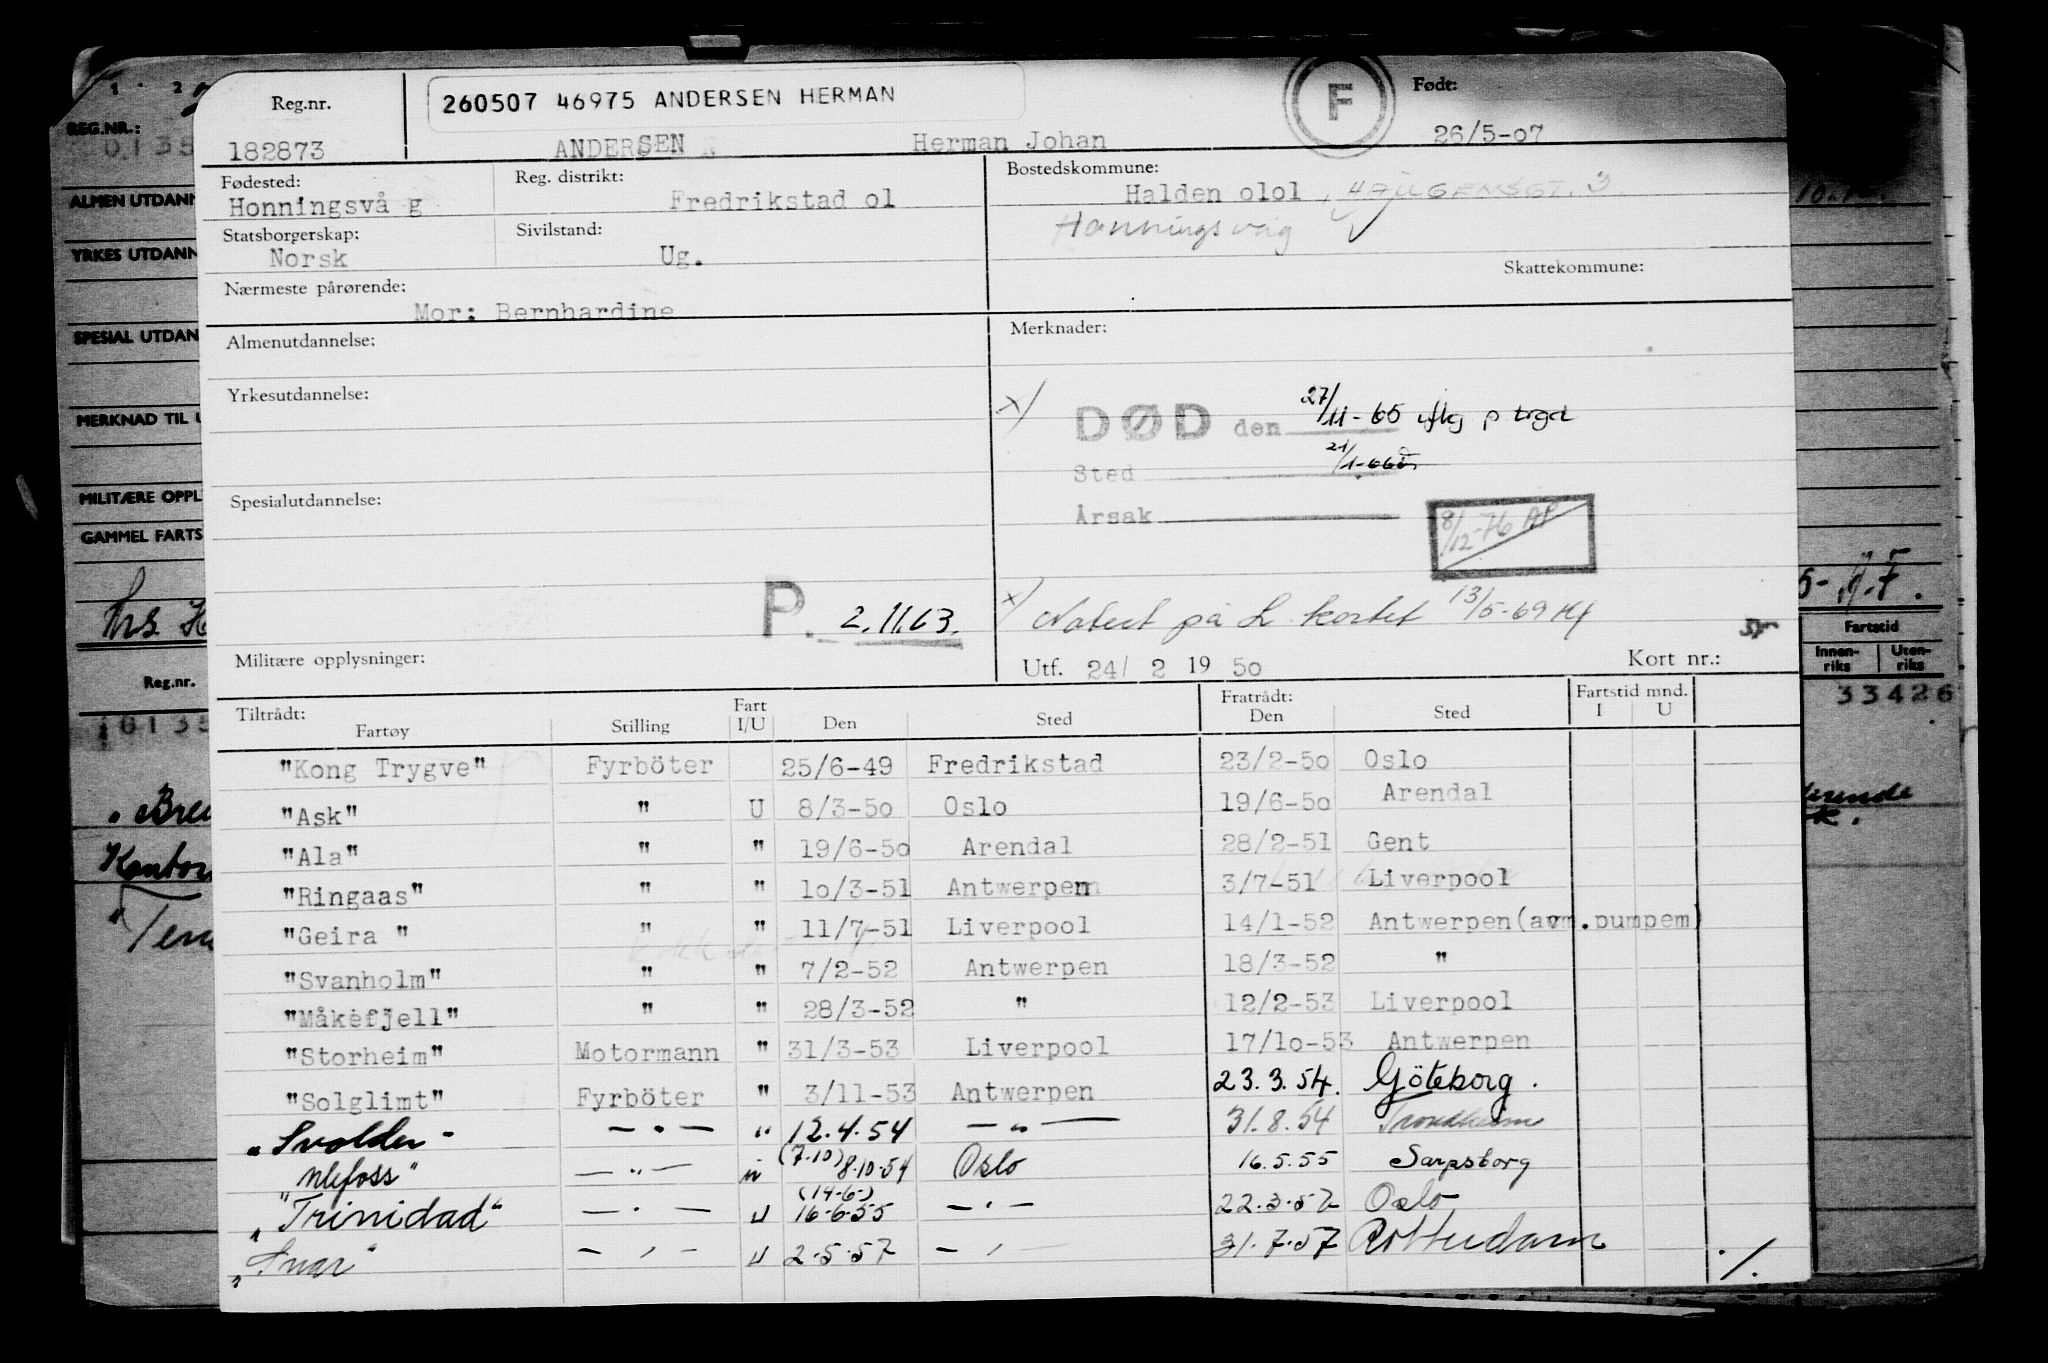 Reg.nr. 260507 46975 ANDERSEN HERMAN F Født:
182873 ANDERSEN Herman Johan 26/5-07
Fødested: Reg. distrikt: Bostedskommune:
Honningsvå g Fredrikstad ol Halden olol, HAUGENSGT. 3
Statsborgerskap: Sivilstand: Honningsvåg
Norsk Ug. Skattekommune:
Nærmeste pårørende:
Mor: Bernhardine
Almenutdannelse: Merknader:
Yrkesutdannelse:
x) DØD den 27/11-65 iflg p trgd
Sted 21/1-66
Årsak
Spesialutdannelse: 8/12-76 AP
P. 2.11.63. x) Notert på L kortet 13/5-69
Militære opplysninger: Utf. 24/ 2 19 50 Kort nr.:
Tiltrådt: Fratrådt: Fartstid mnd.
Fartøy Stilling Fart I/U Den Sted Den Sted I U
"Kong Trygve" Fyrböter 25/6-49 Fredrikstad 23/2-50 Oslo
"Ask" " U 8/3-50 Oslo 19/6-50 Arendal
"Ala" " " 19/6-50 Arendal 28/2-51 Gent
"Ringaas" " " 1o/3-51 Antwerpen 3/7-51 Liverpool
"Geira " " " 11/7-51 Liverpool 14/1-52 Antwerpen(avm.pumpem)
"Svanholm" " " 7/2-52 Antwerpen 18/3-52 "
"Måkefjell" " " 28/3-52 " 12/2-53 Liverpool
"Storheim" Motormann " 31/3-53 Liverpool 17/1o-53 Antwerpen
"Solglimt" Fyrböter " 3/11-53 Antwerpen 23.3.54. Göteborg.
"Svolder" — " — " 12.4.54 — " — 31.8.54 Trondheim
Ulefoss" — " — (7.10) 8.10.54 Oslo 16.5.55 Sarpsborg
"Trinidad" — " — U (14-6-) 16-6-55 — " — 22.3.57 Oslo
"Snar" — " — U 2.5.57 — " — 31.7.57 Rotterdam ./.
1. 2
REG.NR.:
0135
ALMEN UTDANN
YRKES UTDANN
SPESIAL UTDAN
MERKNAD TIL U
MILITÆRE OPPL
GAMMEL FARTS
hrs.
Reg.nr.
6135
Kontor
Fartstid
Innen-riks Uten-riks
33426